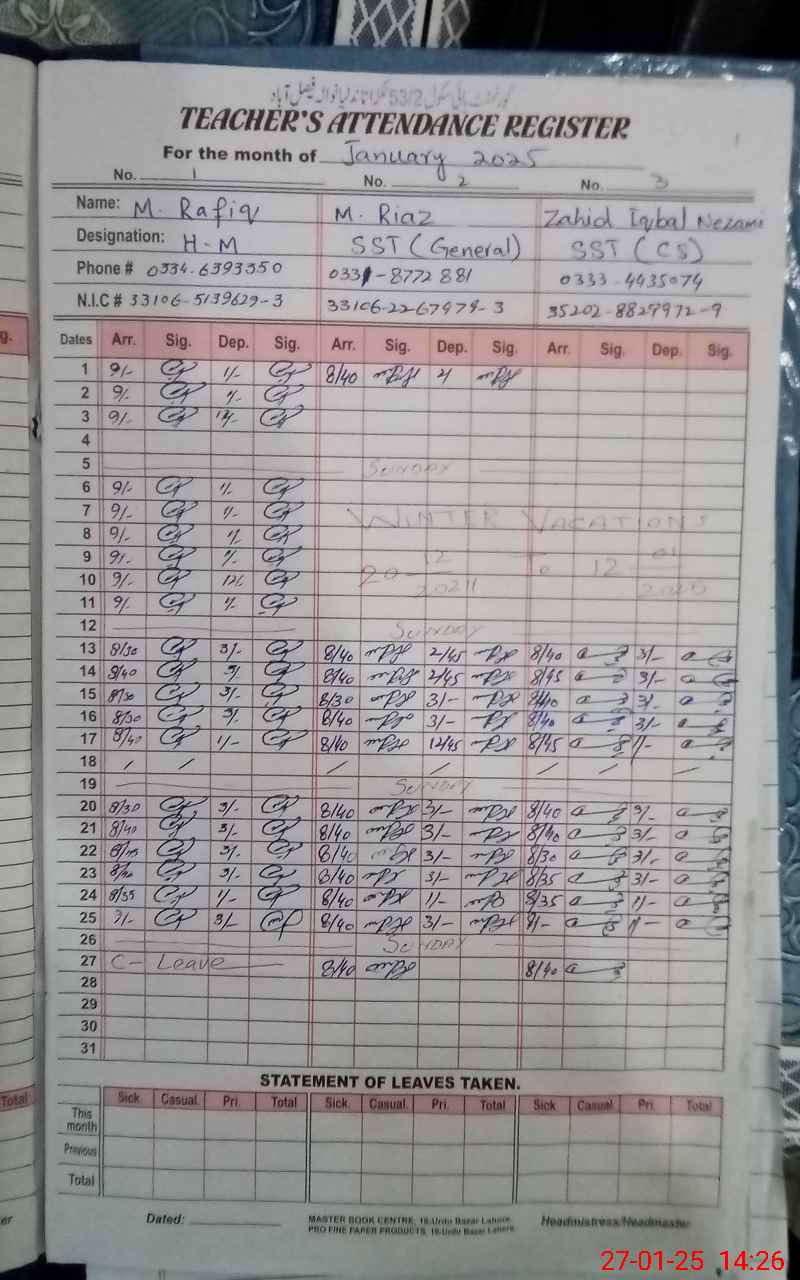 گورنمنٹ ہائی سکول 53/2 ٹکڑا تاندلیانوالہ فیصل آباد
TEACHER'S ATTENDANCE REGISTER
For the month of January 2025
No. 1 No. 2 No. 3
Name: M. Rafiq M. Riaz Zahid Iqbal Nezami
Designation: H-M SST (General) SST (CS)
Phone # 0334-6393350 0331-8772881 0333-4435074
N.I.C # 33106-5139629-3 33106-2267979-3 35202-8829972-9
Dates Arr. Sig. Dep. Sig. Arr. Sig. Dep. Sig. Arr. Sig. Dep. Sig.
1 9/- 1/- 8/40
2 9/- 1/-
3 9/- 12/-
4
5 SUNDAY
6 9/- 1/-
7 9/- 1/- WINTER VACATIONS
8 9/- 1/-
9 9/- 1/- 20-12-2024 To 12-01-2025
10 9/- 12/-
11 9/- 1/-
12 SUNDAY
13 8/30 3/- 8/40 2/45 8/40 3/-
14 8/40 3/- 8/40 2/45 8/45 3/-
15 8/30 3/- 8/30 3/- 8/40 3/-
16 8/30 3/- 8/40 3/- 8/40 3/-
17 8/40 1/- 8/40 12/45 8/45 1/-
18 / / / / / / /
19 SUNDAY
20 8/30 3/- 8/40 3/- 8/40 3/-
21 8/40 3/- 8/40 3/- 8/40 3/-
22 3/- 8/40 3/- 8/30 3/-
23 3/- 8/40 3/- 8/35 3/-
24 8/35 1/- 8/40 1/- 8/35 1/-
25 3/- 8/40 3/- 1/-
26 SUNDAY
27 C- Leave 8/40 8/40
28
29
30
31
STATEMENT OF LEAVES TAKEN.
Sick. Casual. Pri. Total Sick. Casual. Pri. Total Sick Casual. Pri. Total
This month
Previous
Total
Dated: MASTER BOOK CENTRE, 16-Urdu Bazar Lahore. Headmistress/Headmaster
PRO FINE PAPER PRODUCTS, 16-Urdu Bazar Lahore.
g.
Total
er
27-01-25 14:26